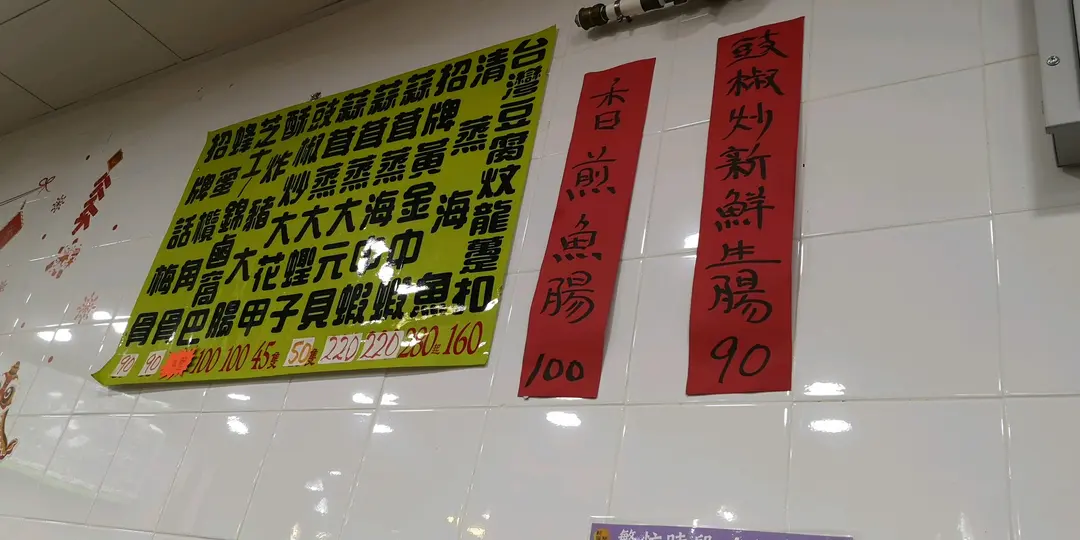 豉椒炒新鮮生腸 90
香煎魚腸 100
台灣豆腐炆龍躉扣 160
清蒸海魚 280起
招牌黃金中蝦 220
蒜茸蒸海中蝦 220
蒜茸蒸大元貝 50隻
蒜茸蒸大蟶子 45隻
豉椒炒大花甲 100
酥炸豬大腸 100
芝士錦鹵窩巴
蜂蜜欖角骨 90
招牌話梅骨 90
繁忙時段